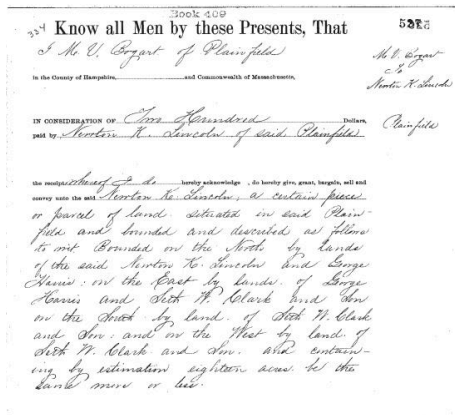 Book 409
334 Know all Men by these Presents, That
I M. V. Bogart of Plainfield
M. V. Bogart
to
Newton K. Lincoln
in the County of Hampshire, and Commonwealth of Massachusetts,
IN CONSIDERATION OF Two Hundred Dollars,
Plainfield
paid by Newton K. Lincoln of said Plainfield
the receipt whereof I do hereby acknowledge, do hereby give, grant, bargain, sell and
convey unto the said Newton K. Lincoln, a certain piece
or parcel of land situated in said Plain-
field and bounded and described as follows
to wit Bounded on the North by lands
of the said Newton K. Lincoln and George
Harris: on the East by lands of George
Harris and Seth W. Clark and Son
on the South by land of Seth W. Clark
and Son: and on the West by land of
Seth W. Clark and Son. and contain-
ing by estimation eighteen acres be the
same more or less.